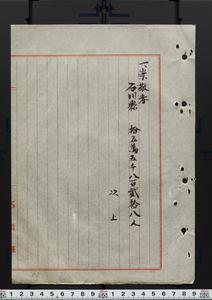 一、崇敬者
石川縣　拾五萬五千八百貳拾八人
以上